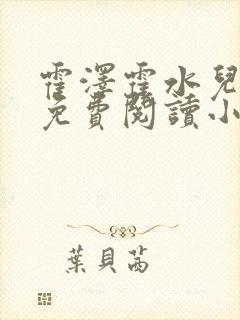 霍澤霍水兒
免費閱讀小
葉貝茜